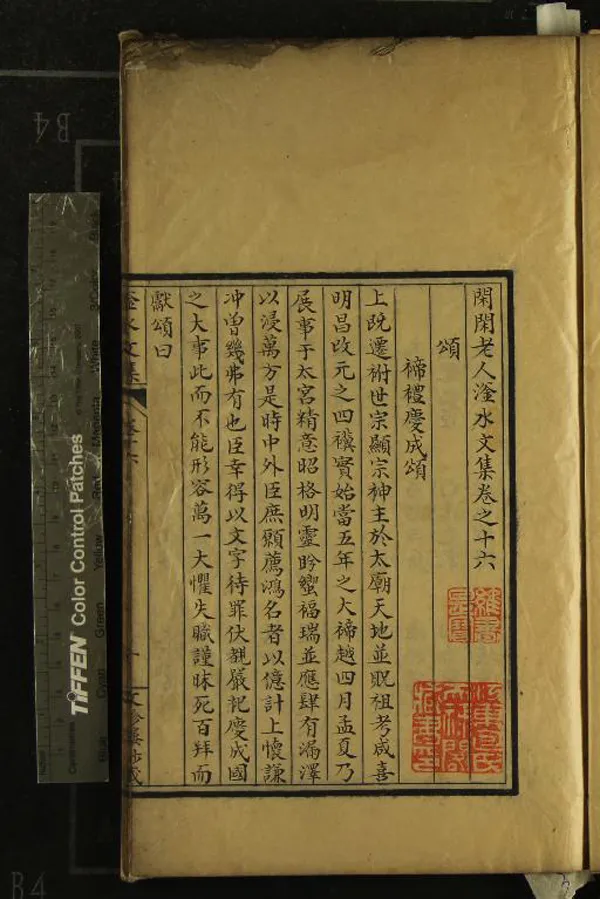 閑閑老人滏水文集卷之十六
頌
禘禮慶成頌
上既遷祔世宗顯宗神主於太廟天地並貺祖考咸喜
明昌改元之四禩實始當五年之大禘越四月孟夏乃
展事于太宮精意昭格明靈肹蠁福瑞並應肆有漏澤
以浸萬方是時中外臣庶願薦鴻名者以億計上懷謙
冲曾幾弗有也臣幸得以文字待罪伏覩嚴祀慶成國
之大事此而不能形容萬一大懼失職謹昧死百拜而
獻頌曰
滏水文集
TIFFEN Color Control Patches
B4
B4